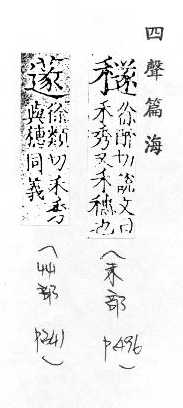 四聲篇海
穟 徐醉切說文曰
禾秀又禾穗也
（禾部 p496）
䔹 徐類切禾秀
與穗同義
（艸部 p241）